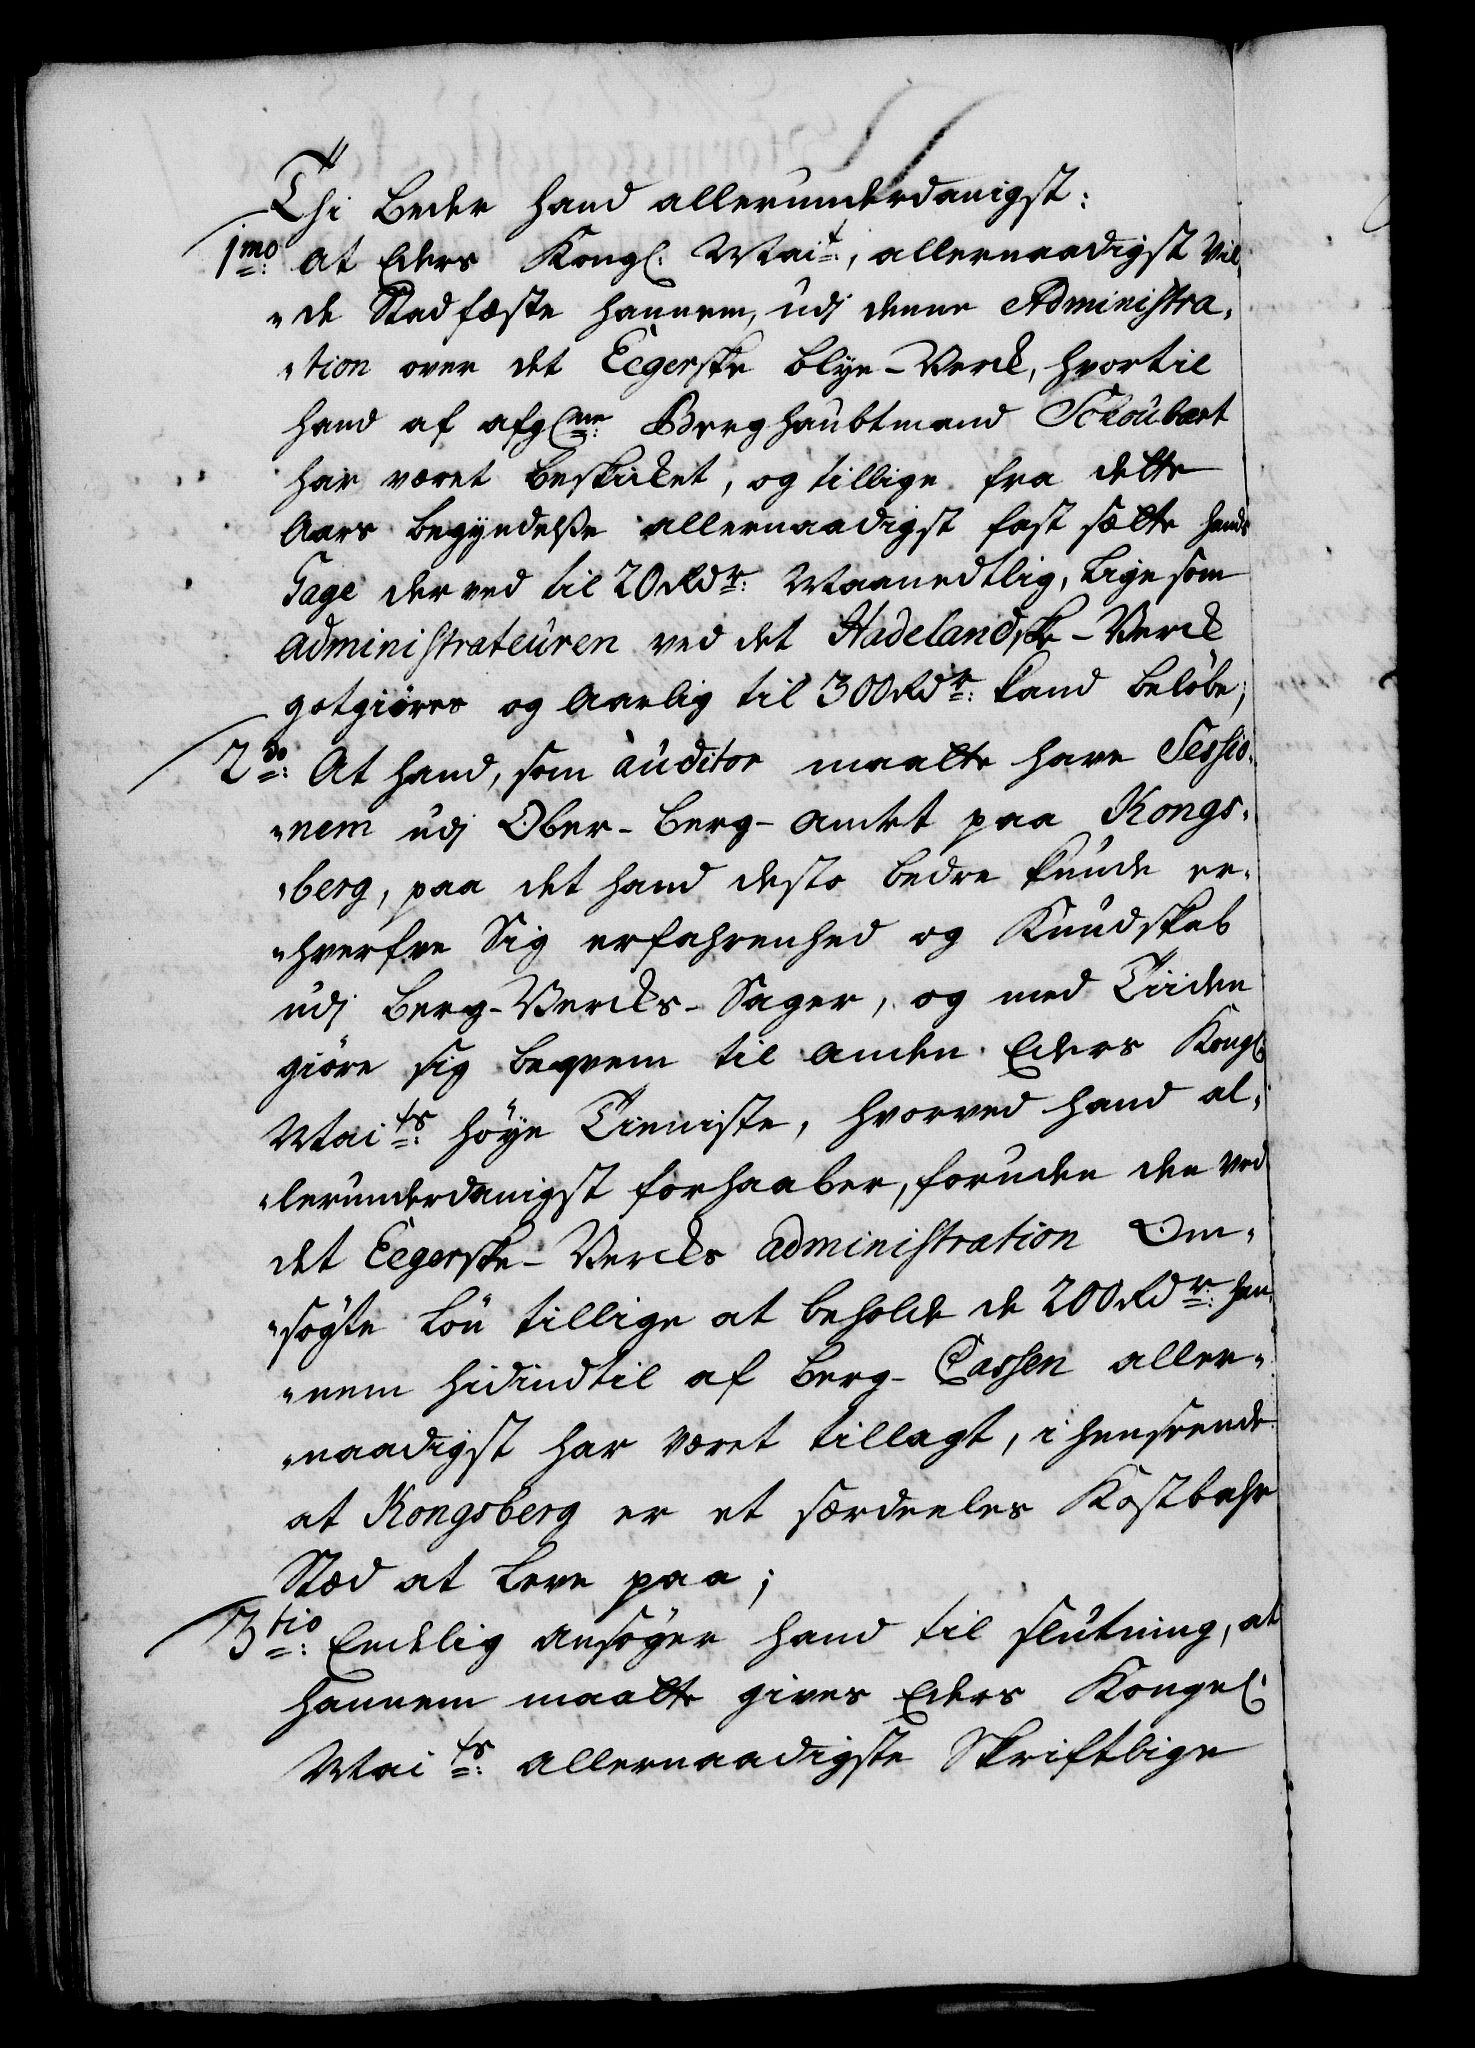 Thi beder hand allerunderdanigst:
1mo: at Eders Kongl: Mait:, allernaadigst vil-
-de Stadfæste hannem, udj denne Administra-
-tion over det Eegerske blye-Verck, hvortil
hand af afgne: Berghaubtmand Schoubart
har været beskicket, og tillige fra dette
Aars begyndelße allernaadigst fast sætte hands
Gage derved til 20 Rdr: Maanedtlig, lige som
administrateuren ved det Hadelandske-Verck
gotgiøres og Aarlig til 300 Rdr: kand beløbe;
2do: At hand, som auditor maatte have Sessio-
-nem udj Ober-Berg-Amtet paa Kongs-
-berg, paa det hand desto bedre kunde er-
-hverfve Sig erfahrenhed og Kundskab
udj Berg-Vercks-Sager, og med Tiiden
giøre sig beqvem til anden Eders Kongl:
Maits: høye Tieniste, hvorved hand al-
-lerunderdanigst forhaaber, foruden den ved
det Eegerske-Vercks administration Om-
-søgte Løn tillige at beholde de 200 Rdr: han-
-nem hidindtil af Berg-Cassen aller-
-naadigst har været tillagt, i henseende
at Kongsberg er et særdeeles Kostbahr
Stæd at leve paa;
3tio: Endelig ansøger hand til slutning, at
hannem maatte gives Eders Kongel:
Maits: allernaadigste Skriftlige